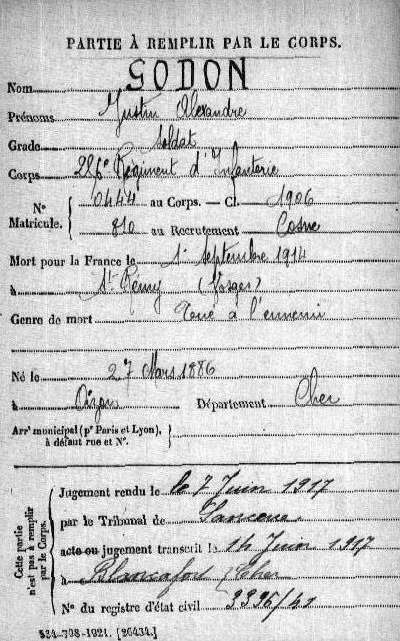 PARTIE À REMPLIR PAR LE CORPS.
Nom GODON
Prénoms Justin Alexandre
Grade Soldat
Corps 286e Régiment d'Infanterie
N° Matricule. { 0444 au Corps. — Cl. 1906
810 au Recrutement Cosne
Mort pour la France le 1er Septembre 1914
à St Rémy (Vosges)
Genre de mort Tué à l'ennemi
Né le 27 Mars 1886
à Oizon Département Cher
Arrt municipal (pr Paris et Lyon),
à défaut rue et N°.
Cette partie n'est pas à remplir par le Corps.
Jugement rendu le le 7 Juin 1917
par le Tribunal de Sancerre
acte ou jugement transcrit le 14 Juin 1917
à Blancafort (Cher
N° du registre d'état civil 3395/41
534-708-1921. [26434.]